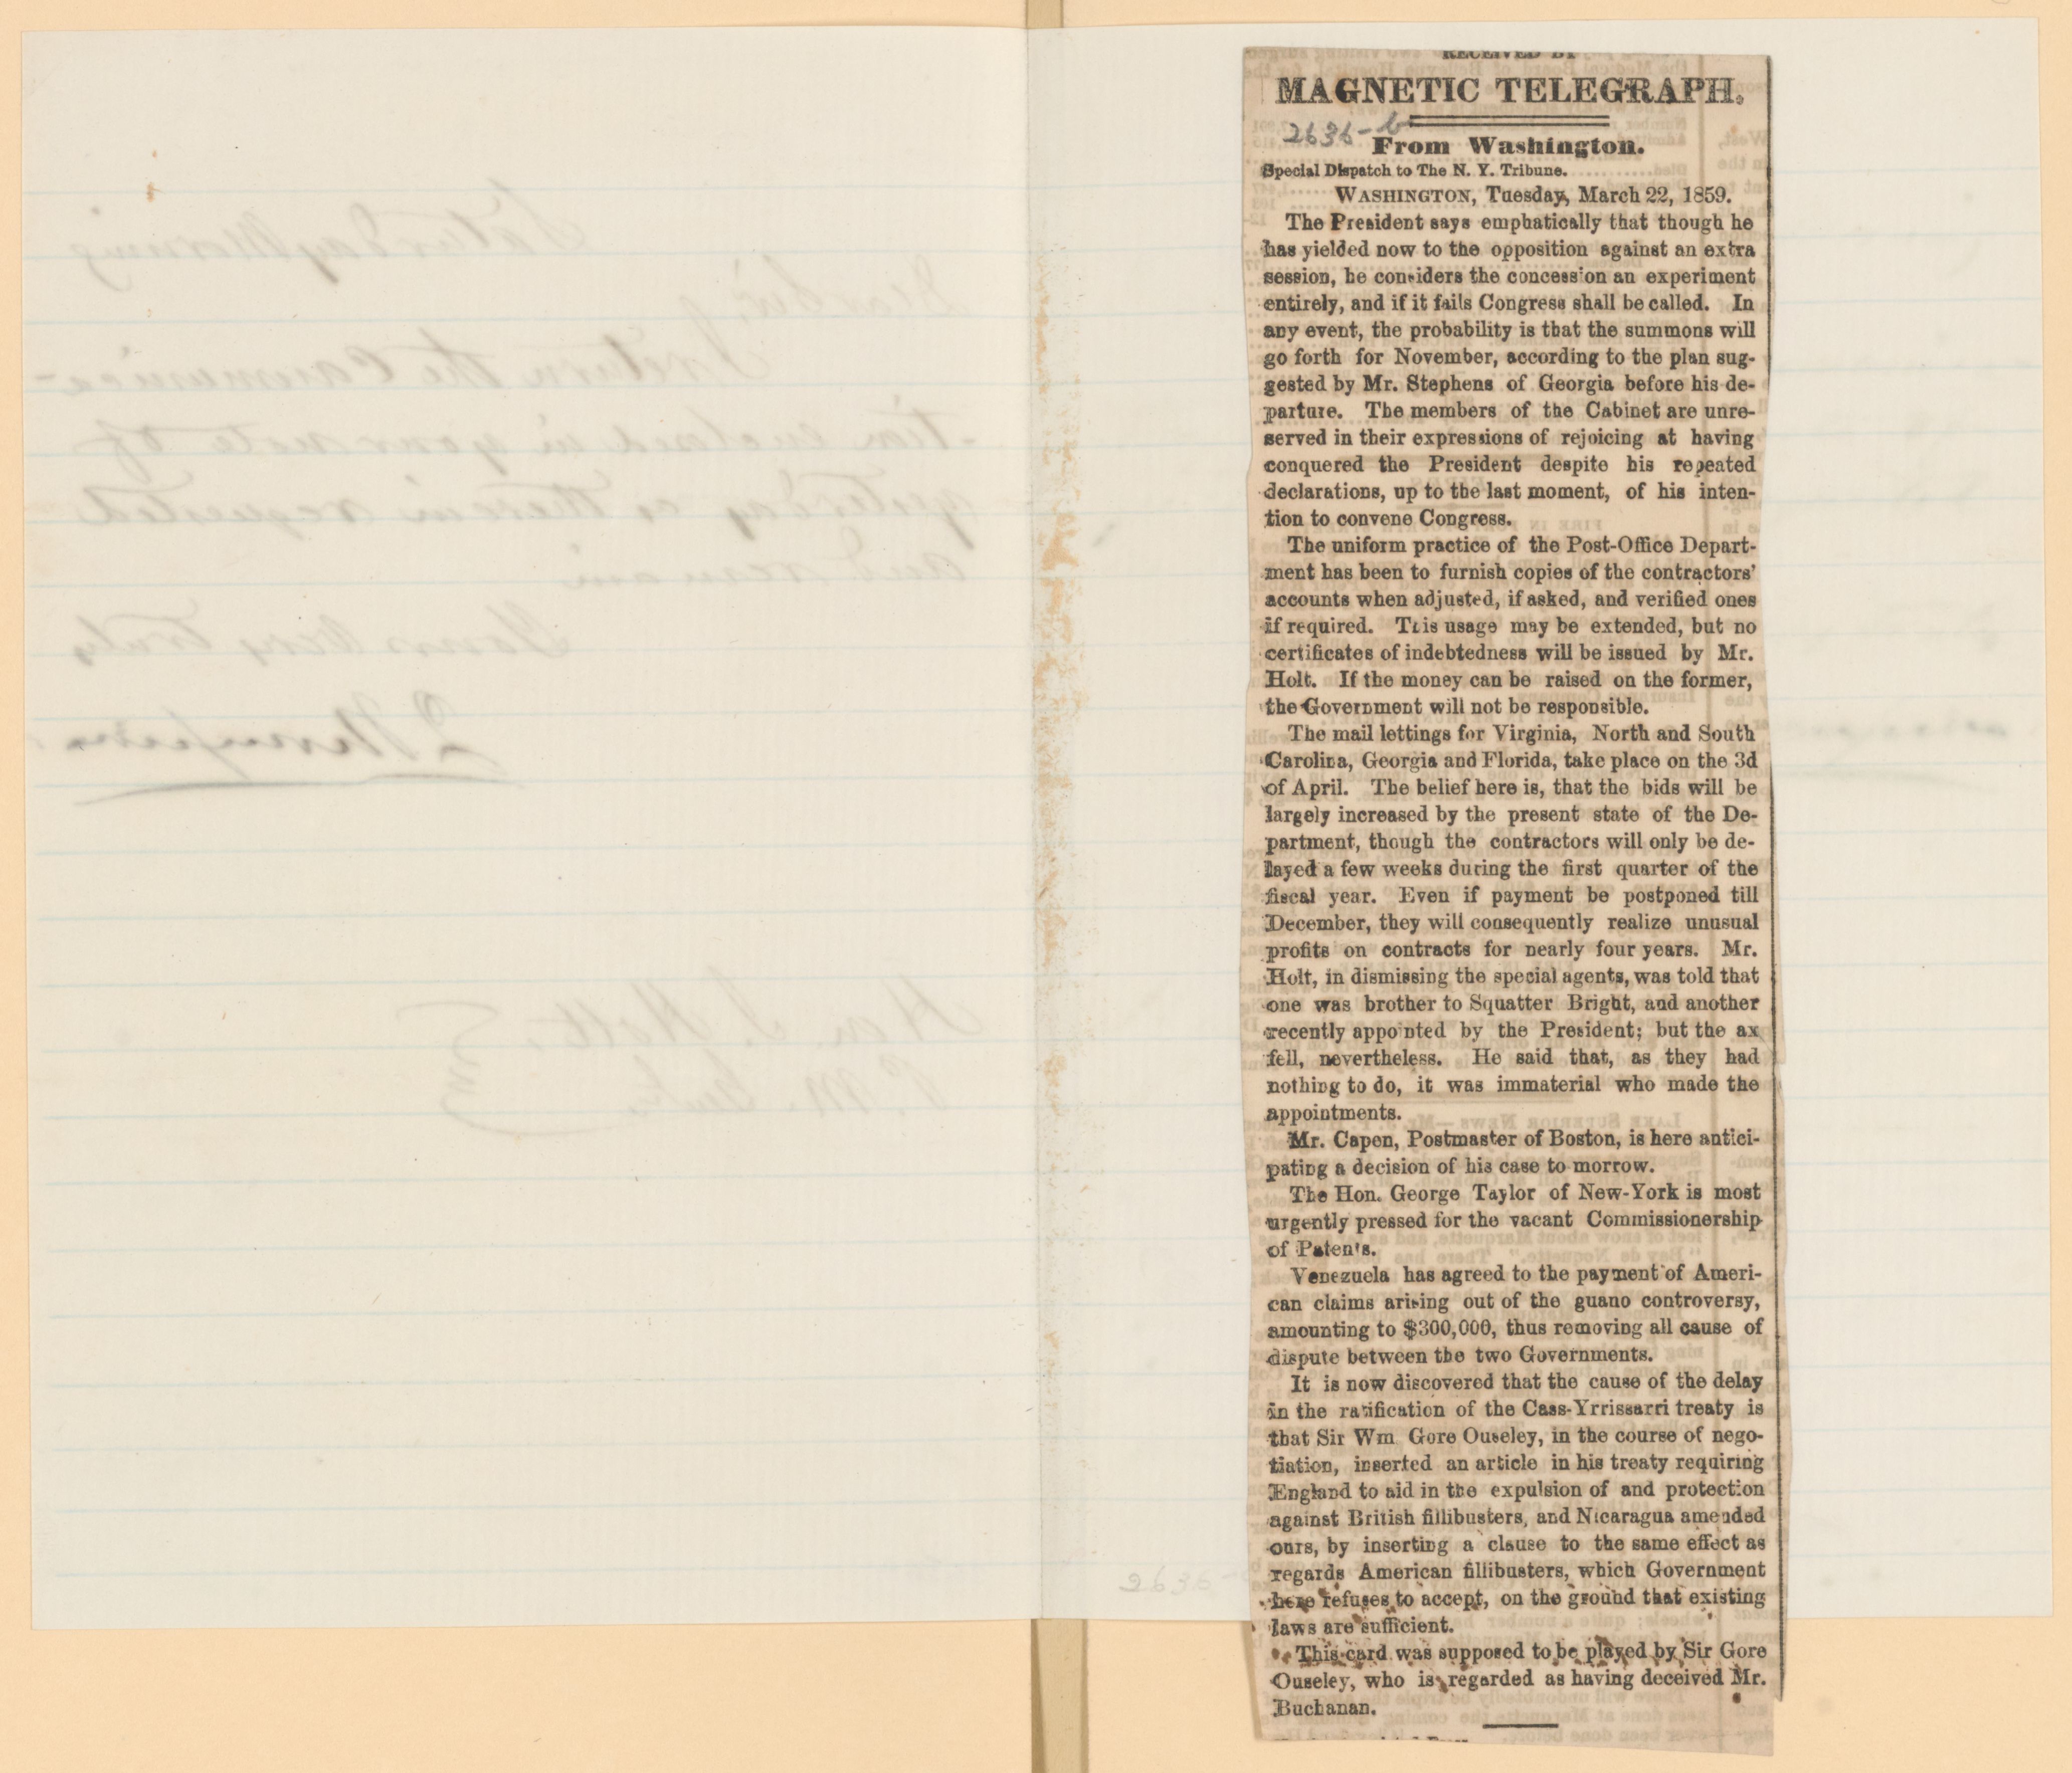 RECEIVED BY
MAGNETIC TELEGRAPH.
2636-b
From Washington.
Special Dispatch to The N. Y. Tribune.
WASHINGTON, Tuesday, March 22, 1859.
The President says emphatically that though he
has yielded now to the opposition against an extra
session, he considers the concession an experiment
entirely, and if it fails Congress shall be called. In
any event, the probability is that the summons will
go forth for November, according to the plan sug-
gested by Mr. Stephens of Georgia before his de-
parture. The members of the Cabinet are unre-
served in their expressions of rejoicing at having
conquered the President despite his repeated
declarations, up to the last moment, of his inten-
tion to convene Congress.
The uniform practice of the Post-Office Depart-
ment has been to furnish copies of the contractors'
accounts when adjusted, if asked, and verified ones
if required. This usage may be extended, but no
certificates of indebtedness will be issued by Mr.
Holt. If the money can be raised on the former,
the Government will not be responsible.
The mail lettings for Virginia, North and South
Carolina, Georgia and Florida, take place on the 3d
of April. The belief here is, that the bids will be
largely increased by the present state of the De-
partment, though the contractors will only be de-
layed a few weeks during the first quarter of the
fiscal year. Even if payment be postponed till
December, they will consequently realize unusual
profits on contracts for nearly four years. Mr.
Holt, in dismissing the special agents, was told that
one was brother to Squatter Bright, and another
recently appointed by the President; but the ax
fell, nevertheless. He said that, as they had
nothing to do, it was immaterial who made the
appointments.
Mr. Capen, Postmaster of Boston, is here antici-
pating a decision of his case to morrow.
The Hon. George Taylor of New-York is most
urgently pressed for the vacant Commissionership
of Patents.
Venezuela has agreed to the payment of Ameri-
can claims arising out of the guano controversy,
amounting to $300,000, thus removing all cause of
dispute between the two Governments.
It is now discovered that the cause of the delay
in the ratification of the Cass-Yrrissarri treaty is
that Sir Wm Gore Ouseley, in the course of nego-
tiation, inserted an article in his treaty requiring
England to aid in the expulsion of and protection
against British fillibusters, and Nicaragua amended
ours, by inserting a clause to the same effect as
regards American fillibusters, which Government
here refuses to accept, on the ground that existing
laws are sufficient.
This card was supposed to be played by Sir Gore
Ouseley, who is regarded as having deceived Mr.
Buchanan.
2636-
Saturday Morning
Dear Sir,
I return the Communica-
-tion enclosed in your note of
yesterday as therein requested
and remain
Yours Very truly
Hon. J. Holt
P. M. Genl.